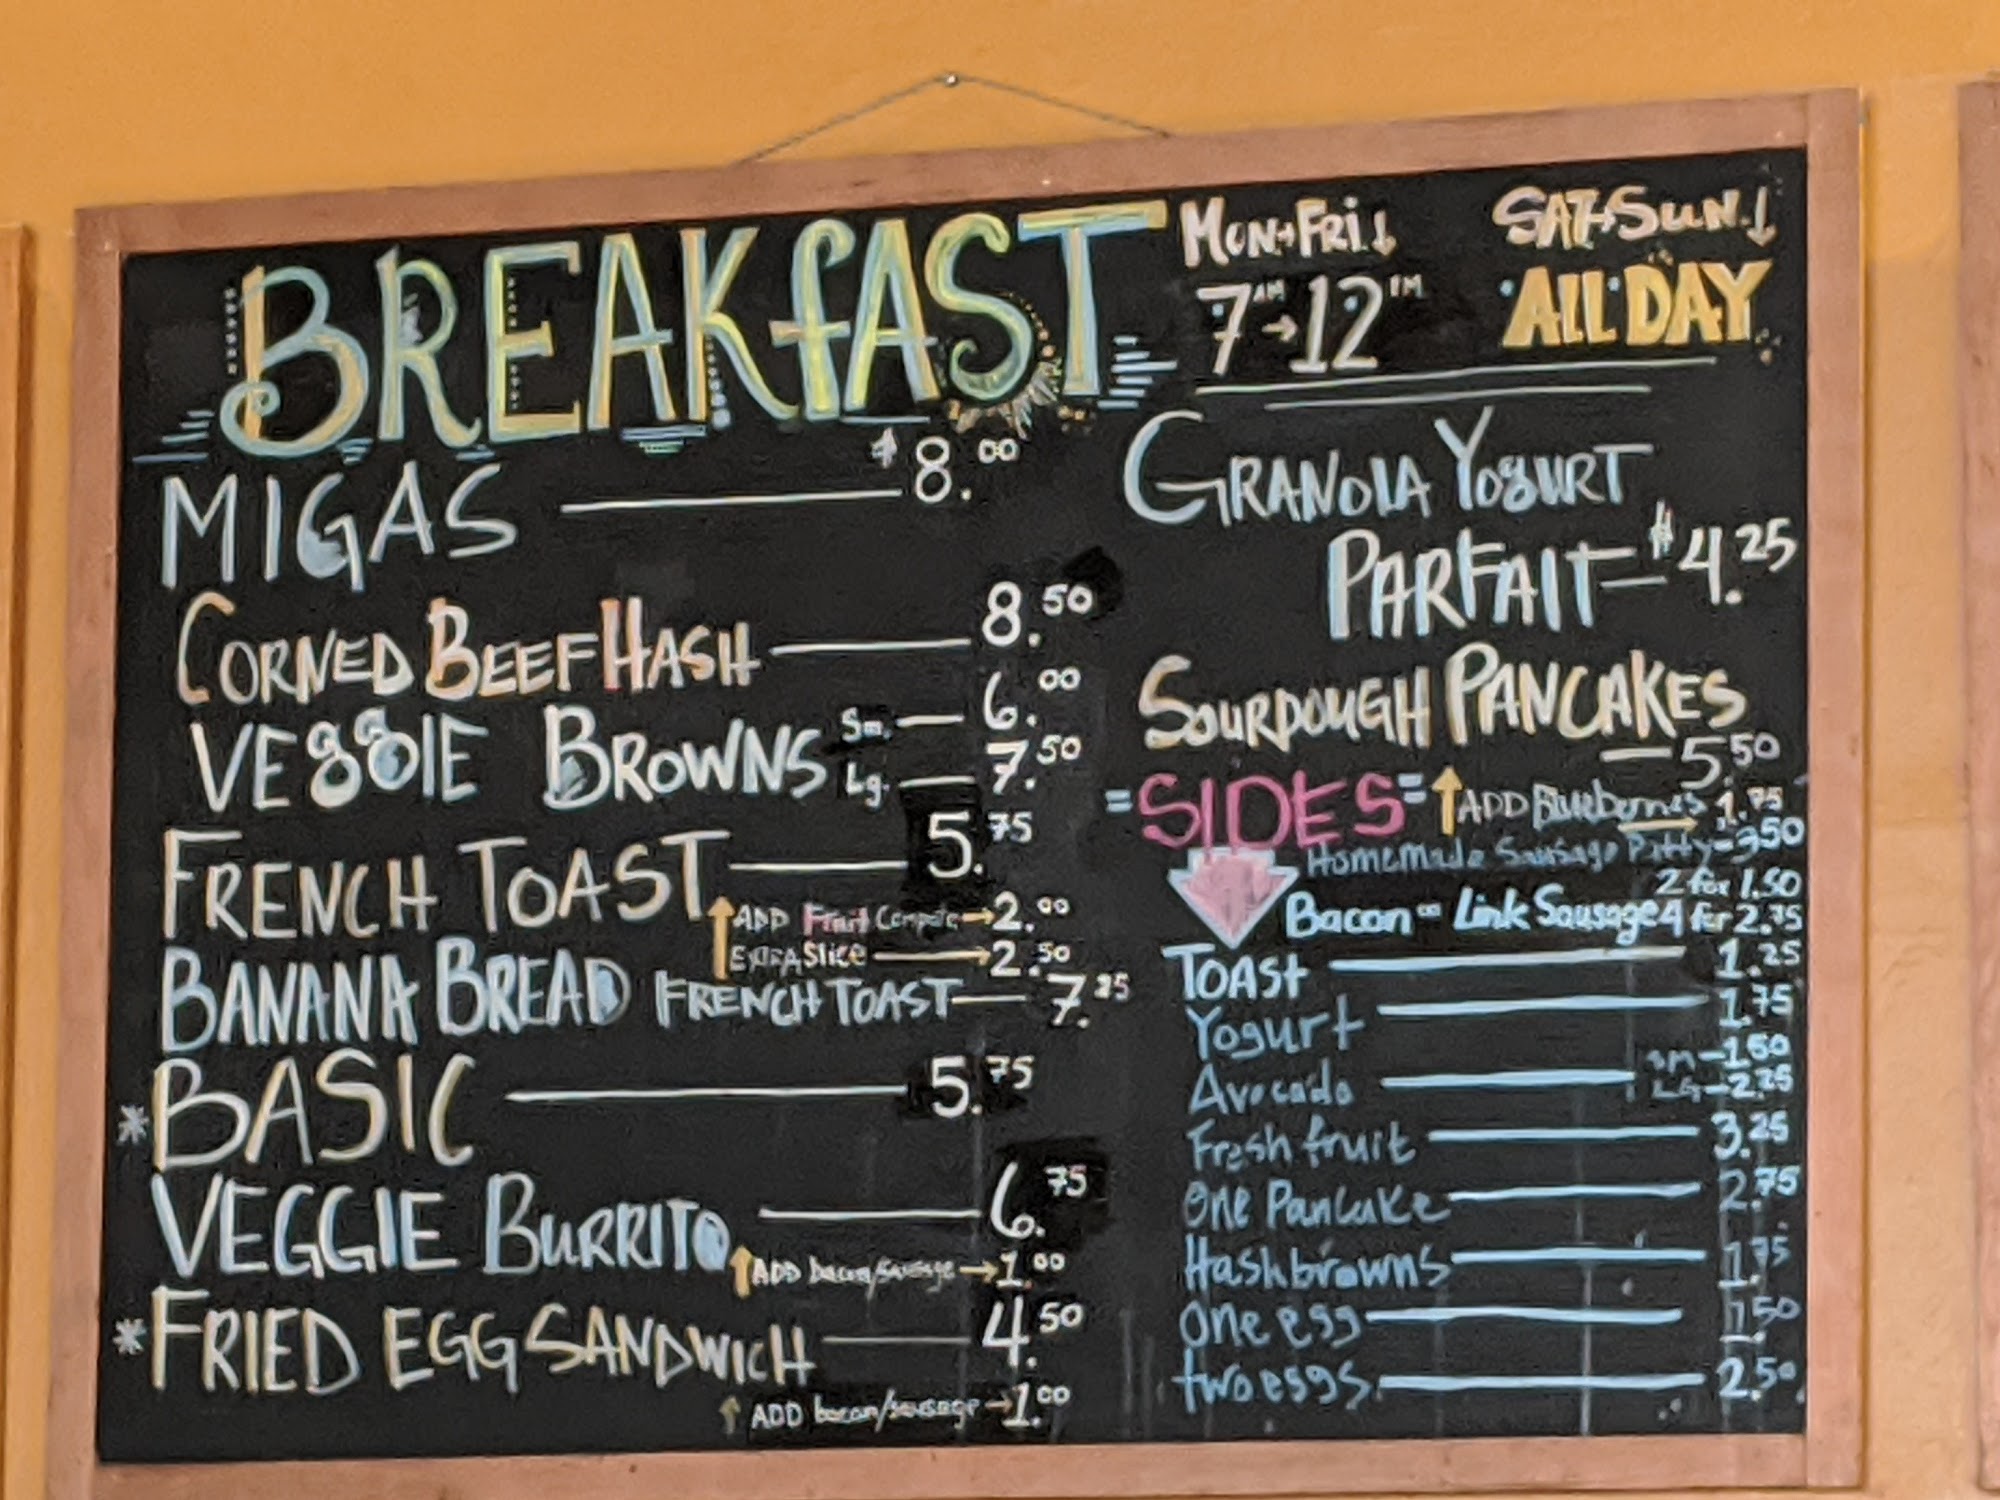 BREAKFAST
MON→FRI↓
7AM→12PM
SAT+SUN.↓
ALL DAY
MIGAS $8.00
CORNED BEEF HASH 8.50
VEGGIE BROWNS Sm. 6.00
Lg. 7.50
FRENCH TOAST 5.75
↑ADD Fruit Compote→2.00
EXTRA Slice→2.50
BANANA BREAD FRENCH TOAST 7.25
*BASIC 5.75
VEGGIE BURRITO 6.75
↑ADD bacon/sausage→1.00
*FRIED EGG SANDWICH 4.50
↑ADD bacon/sausage→1.00
GRANOLA YOGURT
PARFAIT $4.25
SOURDOUGH PANCAKES
5.50
↑ADD Blueberries 1.75
=SIDES=
Homemade Sausage Patty-3.50
2 for 1.50
Bacon or Link Sausage 4 for 2.75
TOAST 1.25
Yogurt 1.75
Avocado SM-1.50
LG-2.25
Fresh fruit 3.25
One Pancake 2.75
Hashbrowns 1.75
One egg 1.50
two eggs. 2.50